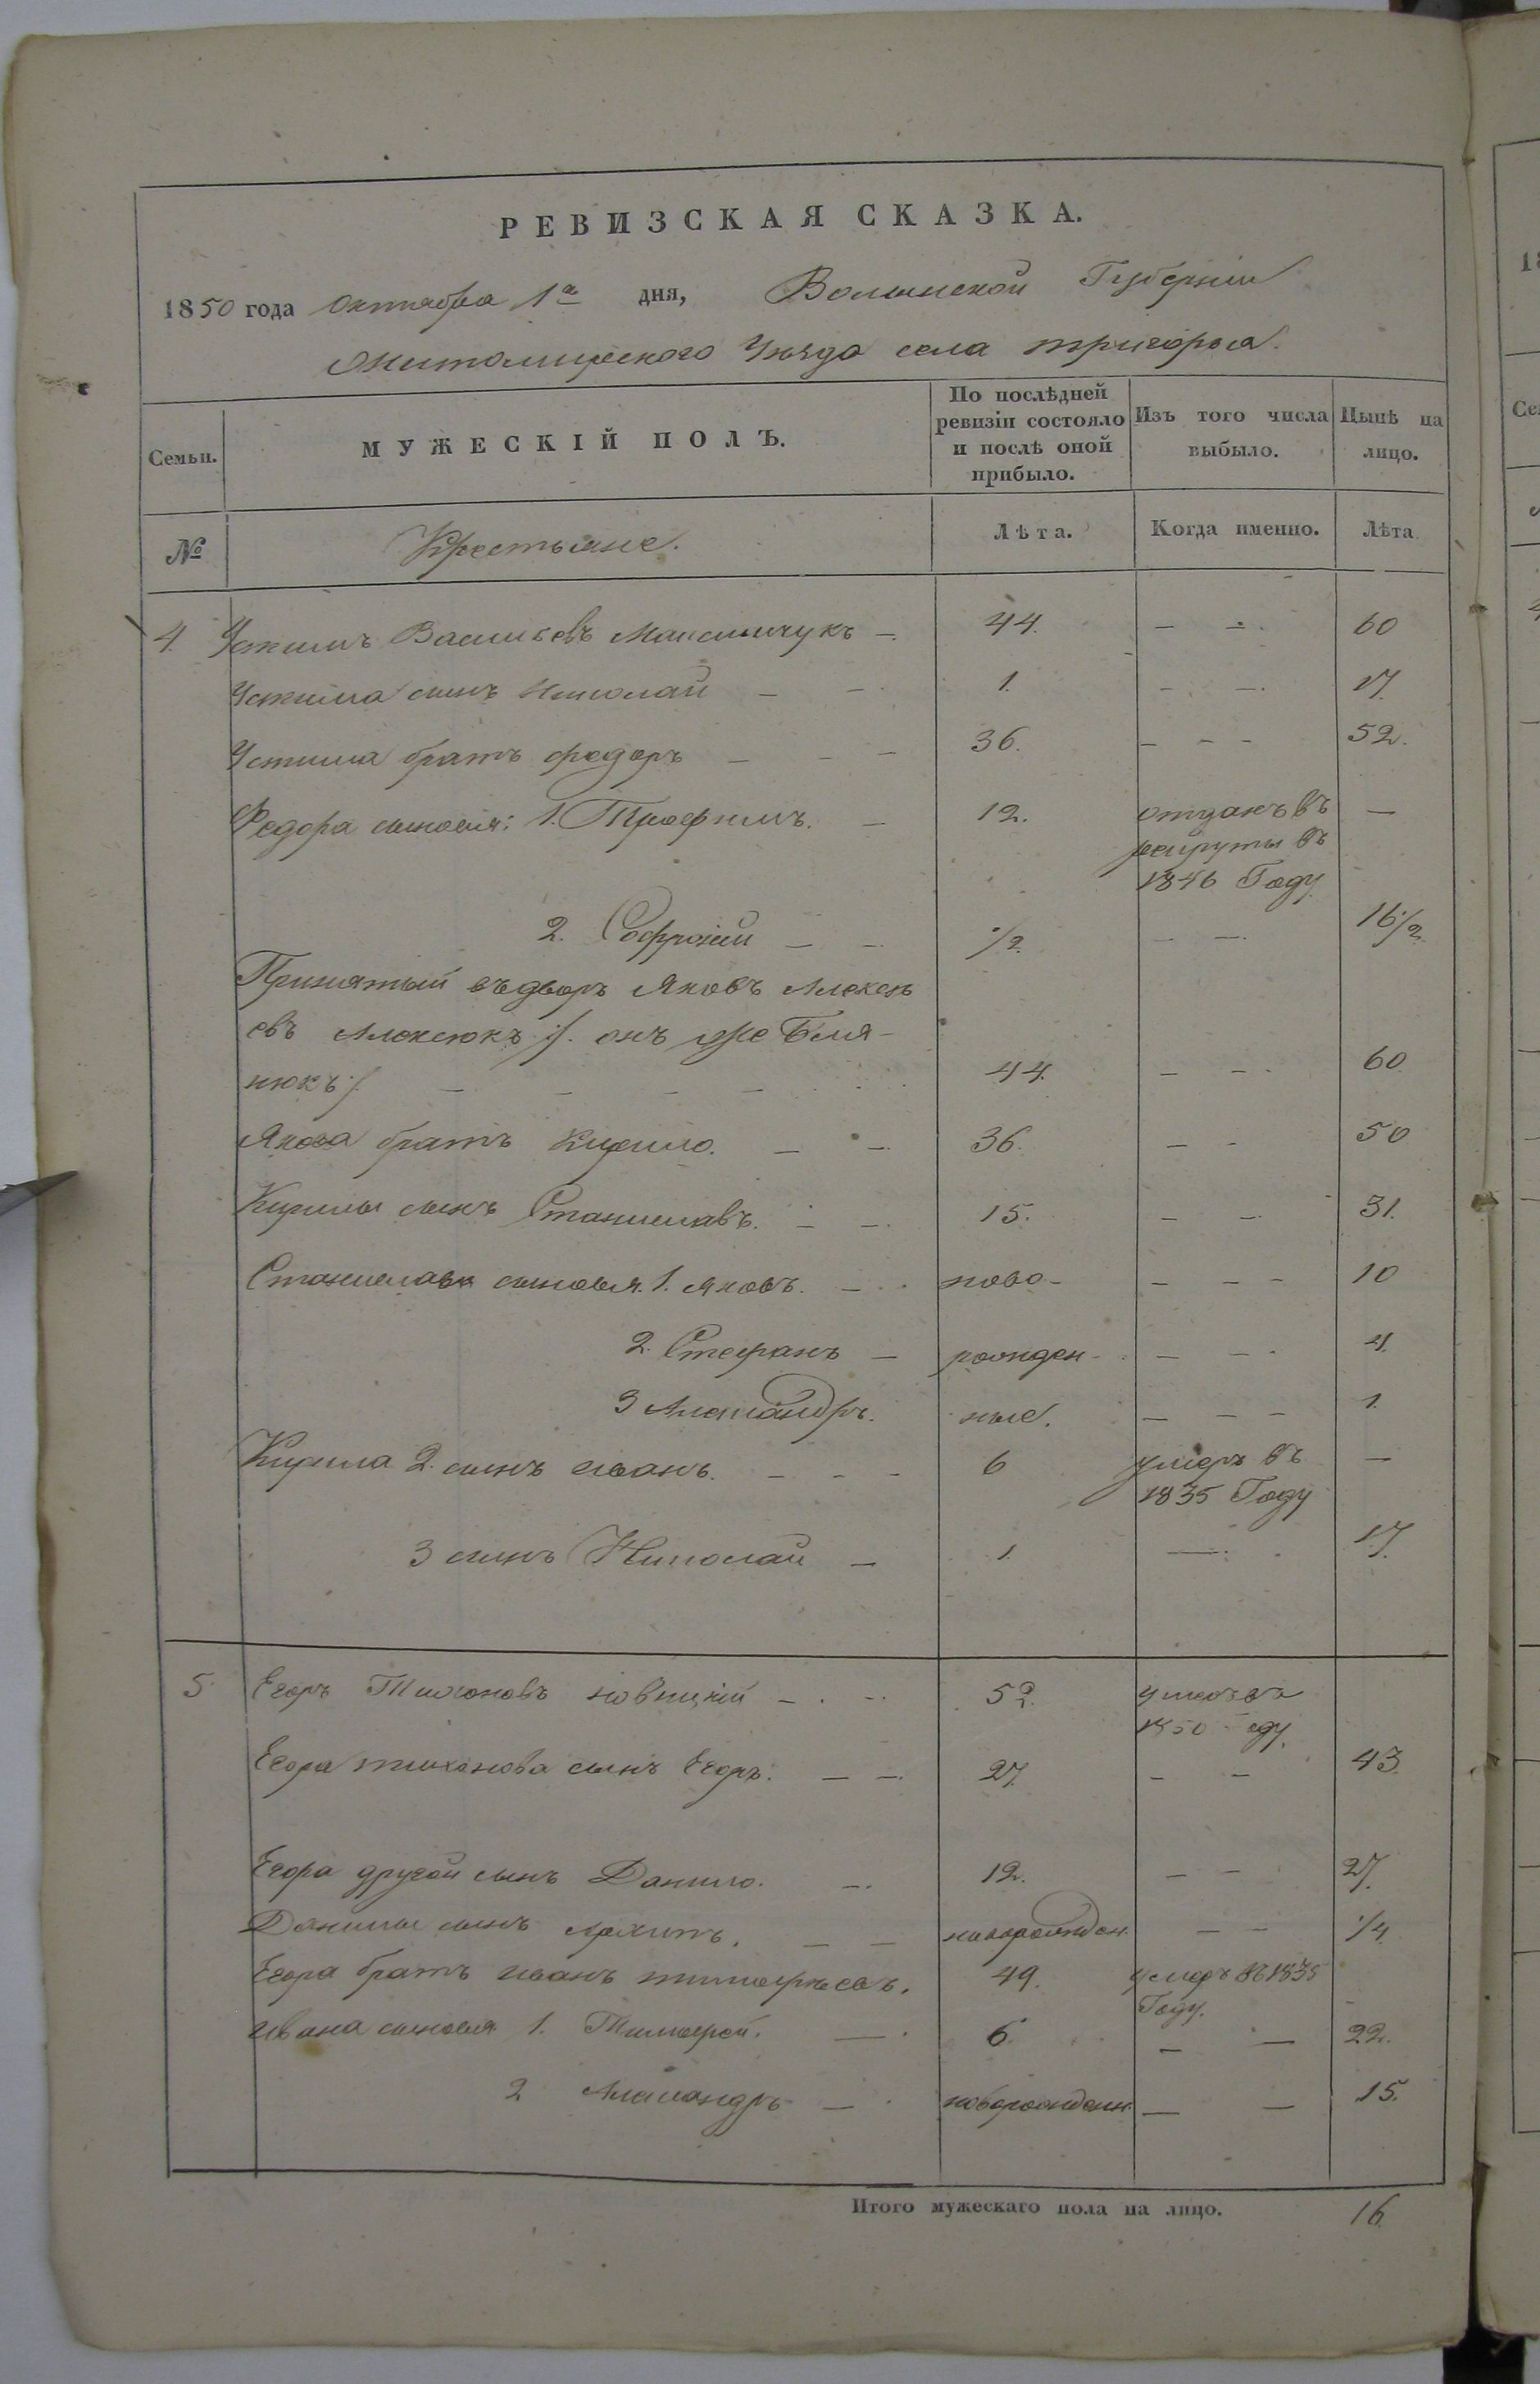 РЕВИЗСКАЯ СКАЗКА.
1850 года Октября 1го дня, Волынской Губернiи
Житомирского Уѣзда села Тригорья.
Семьи. МУЖЕСКІЙ ПОЛЪ. По послѣдней ревизіи состояло и послѣ оной прибыло. Изъ того числа выбыло. Нынѣ на лицо.
№ Крестьяне. Лѣта. Когда именно. Лѣта
4 Устимъ Васильевъ Максимчукъ — 44. — — 60
Устима сынъ Николай — — 1. — — 17.
Устима братъ Федоръ — — — 36. — — — 52.
Федора сыновья: 1. Трофимъ. — 12. отданъ въ —
рекруты въ
1846 Году
2. Софроній — — 1/2 — — 16 1/2
Принятый въ дворъ Яковъ Алексѣ
евъ Алексюкъ /. онъ же
нюкъ /. — — — — 44. — — 60
Якова братъ Кирило. — — 36. — — 50
Кирилы сынъ Станиславъ. — — 15. — — 31.
Станислава сыновья. 1. Яковъ. — ново- — — — 10
2. Стефанъ — рожден- — — 4.
3 Александръ. ные. — — — 1.
Кирила 2. сынъ Иванъ. — — — 6 умеръ въ —
1835 Году
3 сынъ Николай — 1. — 17.
5 Егоръ Тихоновъ Новицкій — — 52. умеръ въ
1850
Егора Тихонова сынъ Егоръ. — — 27. — — 43.
Егора другой сынъ Данило. — 12. — — 27.
Данилы сынъ — — новорожден. — — 1/4
Егора братъ Иванъ Тимофѣевъ. 49. умеръ въ 1835
Году.
Ивана сыновья 1. Тимофей. — 6. — — 22.
2 Александръ — новорожденн. — — 15.
Итого мужескаго пола на лицо. 16